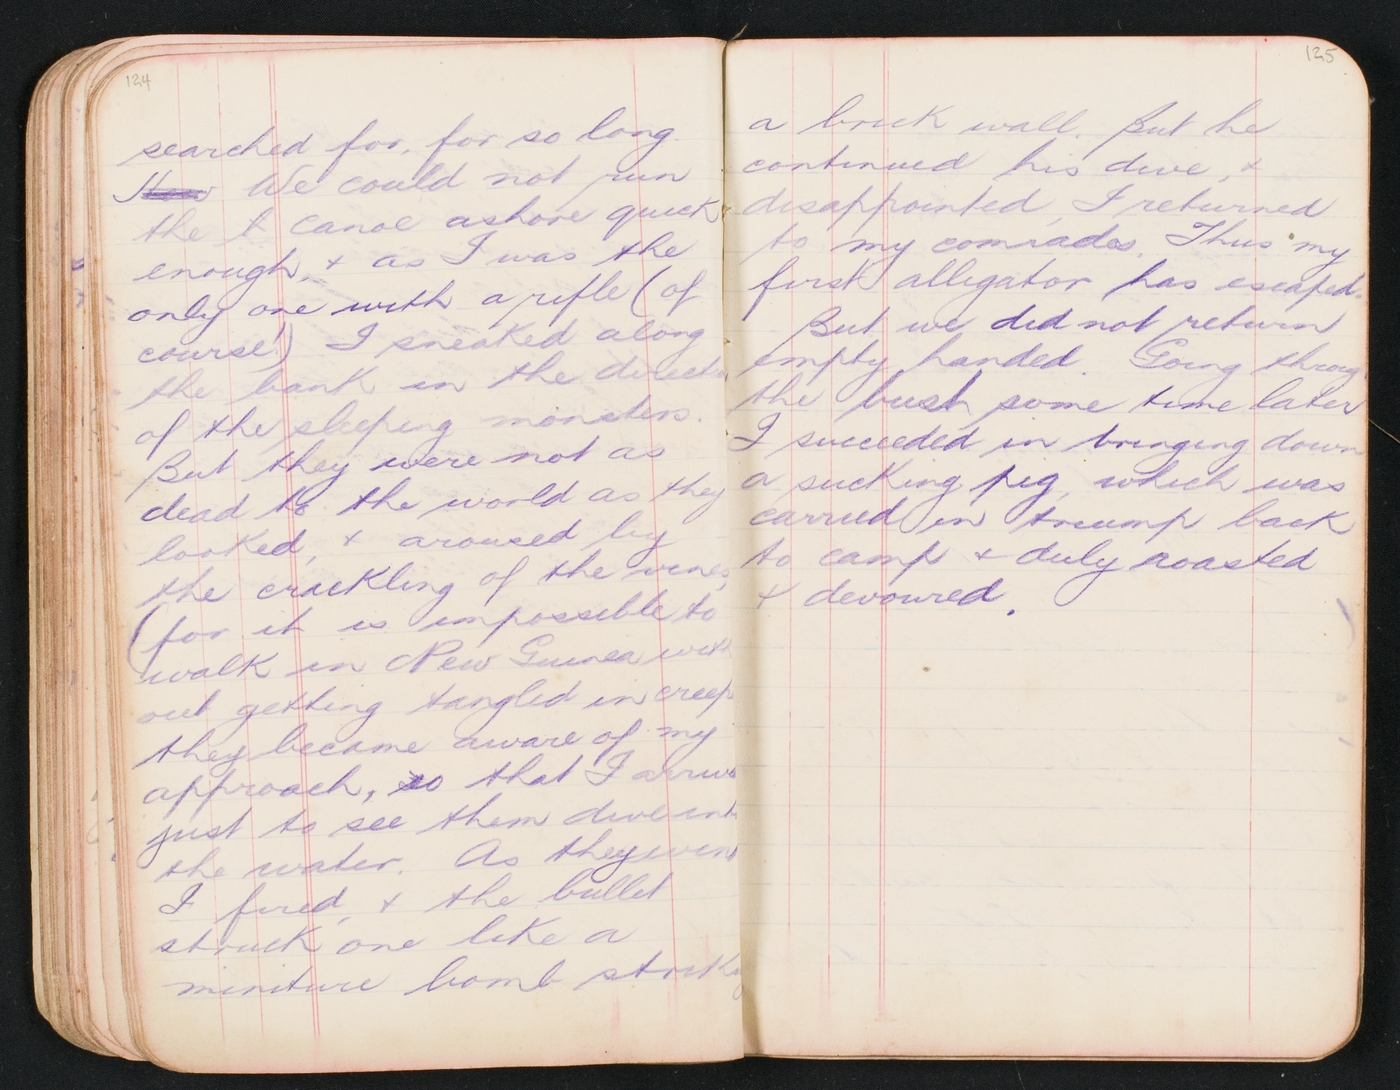 124
searched for, for so long.
We could not run
the b canoe ashore quick
enough, & as I was the
only one with a rifle (of
course!) I sneaked along
the bank in the directi
of the sleeping monsters.
But they were not as
dead to the world as they
looked, & aroused by
the crackling of the vines
(for it is impossible to
walk in New Guinea with
out getting tangled in creep
they became aware of my
approach, so that I arrive
just to see them dive int
the water. As they went
I fired, & the bullet
struck one like a
miniture bomb strikg
125
a brick wall. But he
continued his dive, &
disappointed, I returned
to my comrades. Thus my
first alligator has escaped.
But we did not return
empty handed. Going throug
the bush some time later
I succeeded in bringing down
a sucking pig, which was
carried in triump back
to camp & duly roasted
& devoured.